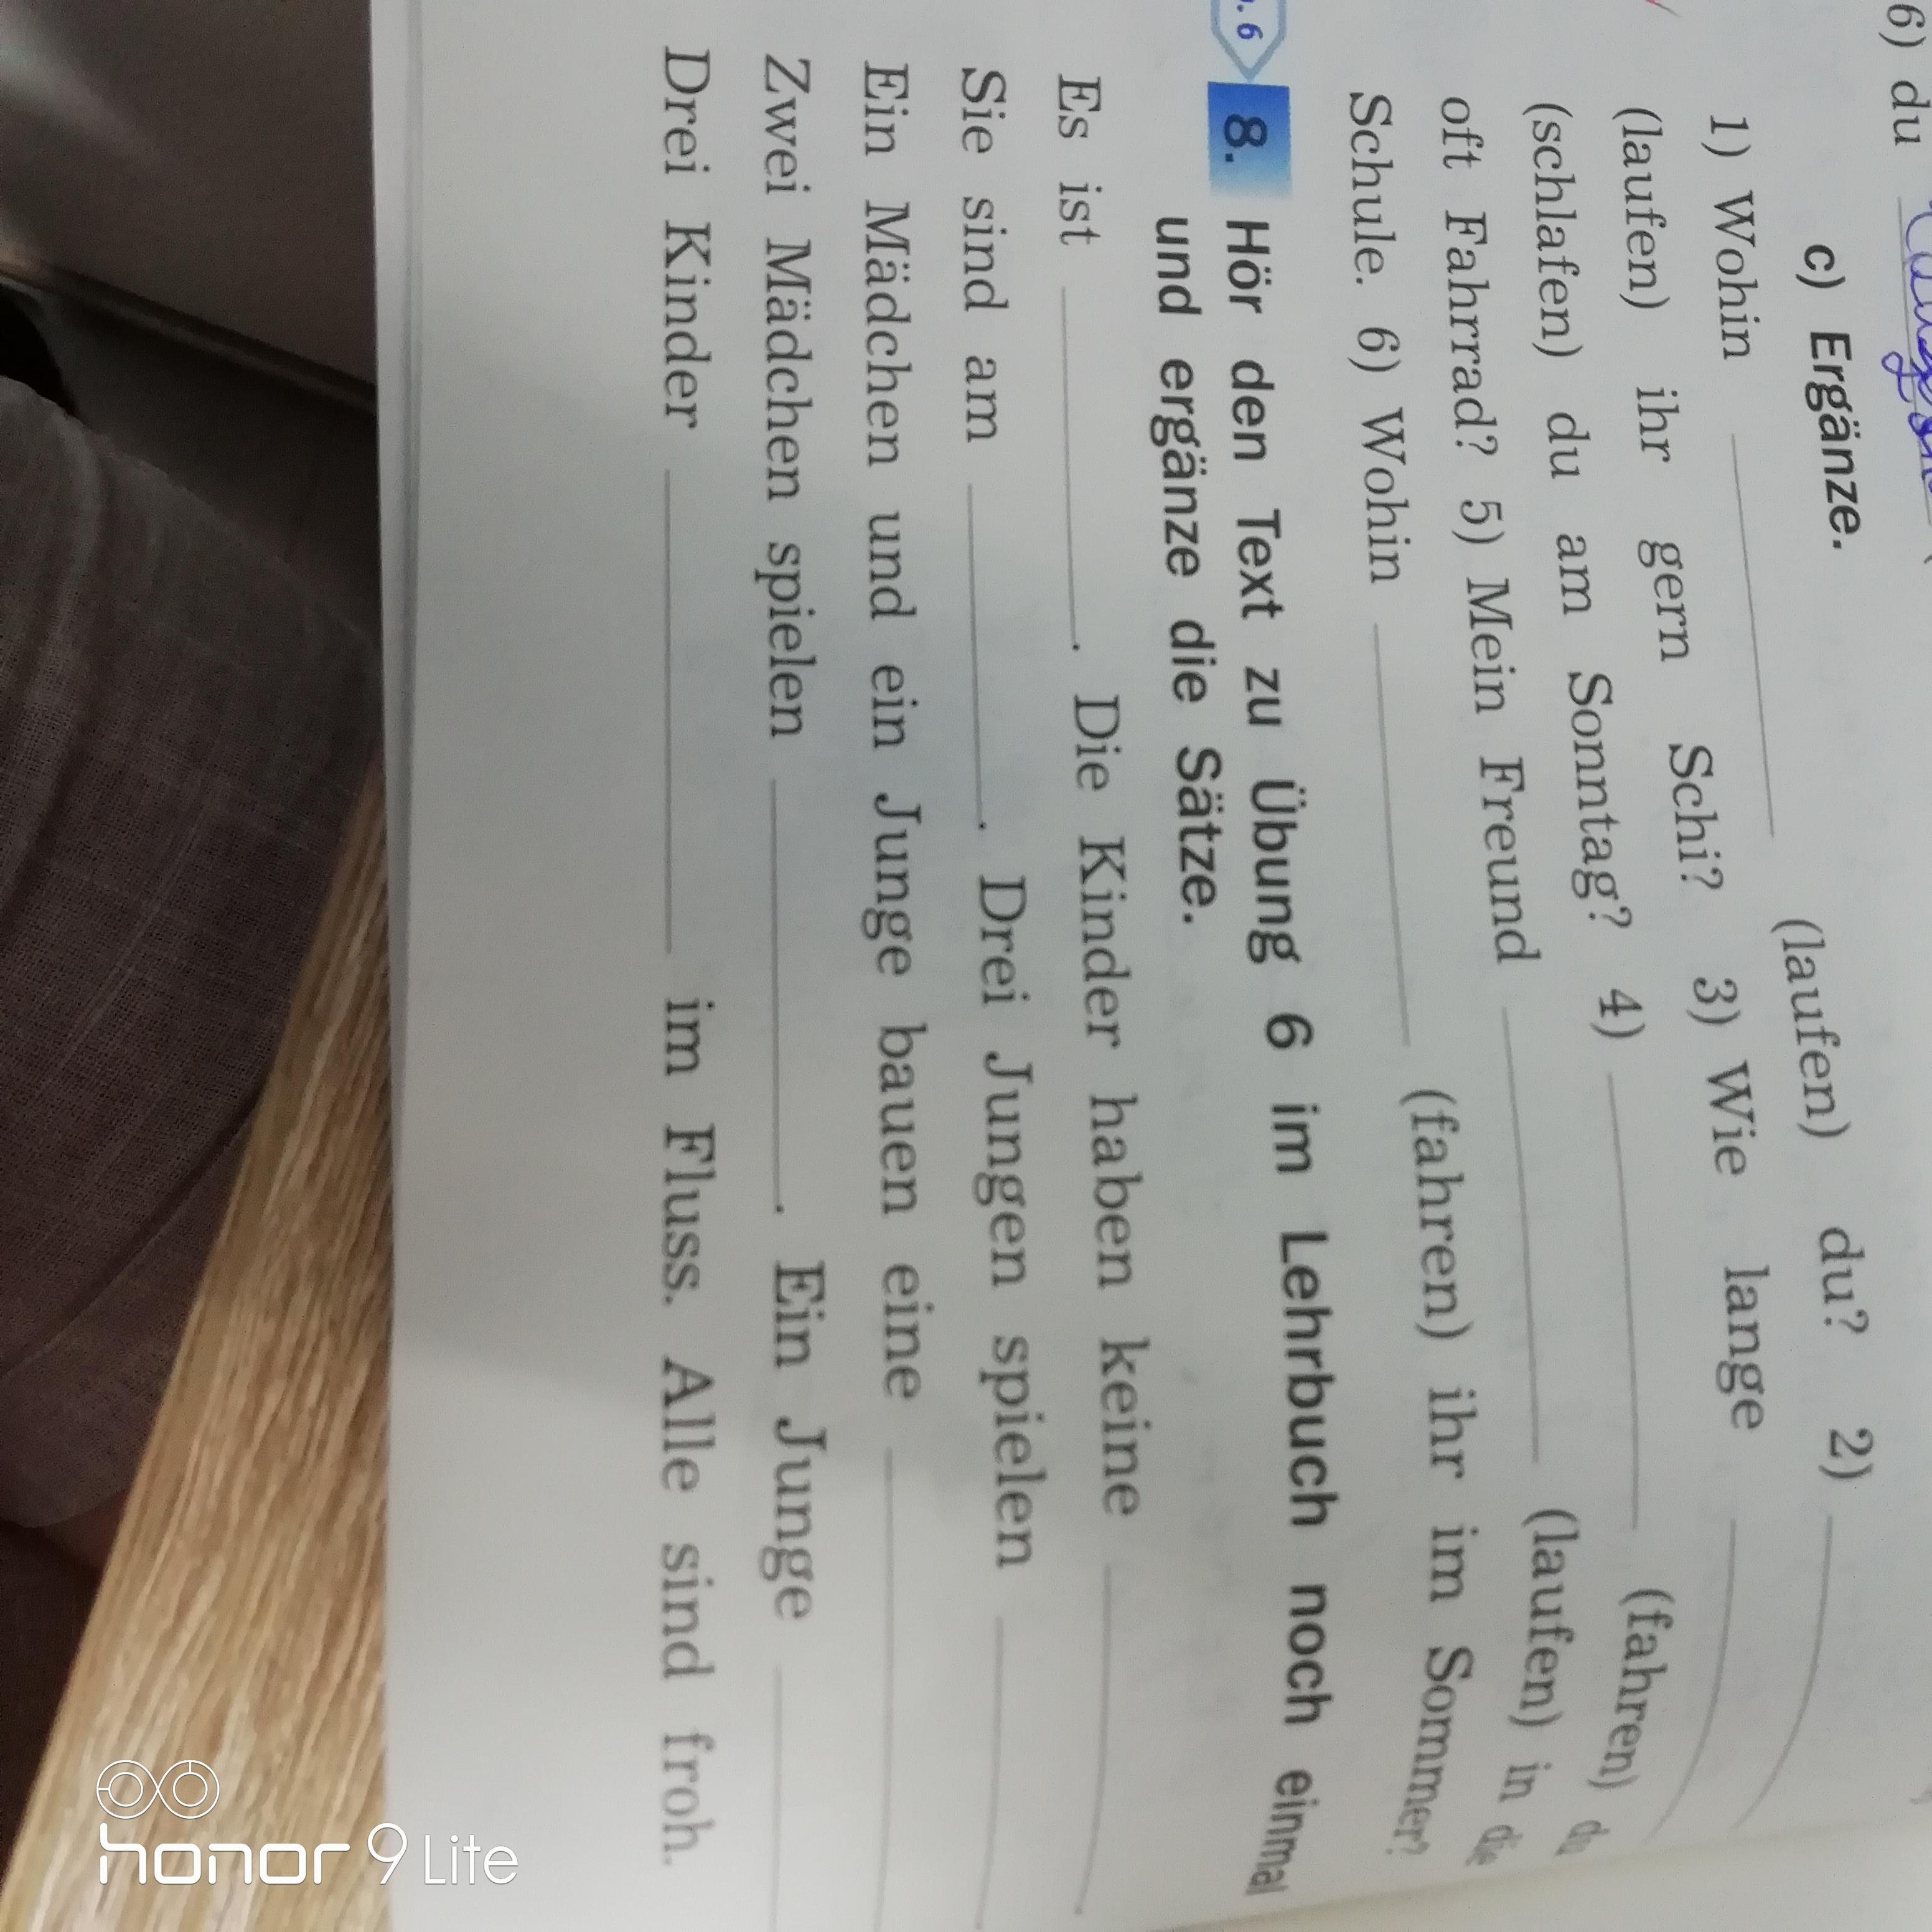 6) du
c) Ergänze.
1) Wohin (laufen) du? 2)
(laufen) ihr gern Schi? 3) Wie lange
(schlafen) du am Sonntag? 4) (fahren) du
oft Fahrrad? 5) Mein Freund (laufen) in die
Schule. 6) Wohin (fahren) ihr im Sommer?
. 6
8. Hör den Text zu Übung 6 im Lehrbuch noch einmal
und ergänze die Sätze.
Es ist . Die Kinder haben keine
Sie sind am . Drei Jungen spielen
Ein Mädchen und ein Junge bauen eine
Zwei Mädchen spielen . Ein Junge
Drei Kinder im Fluss. Alle sind froh.
honor 9 Lite